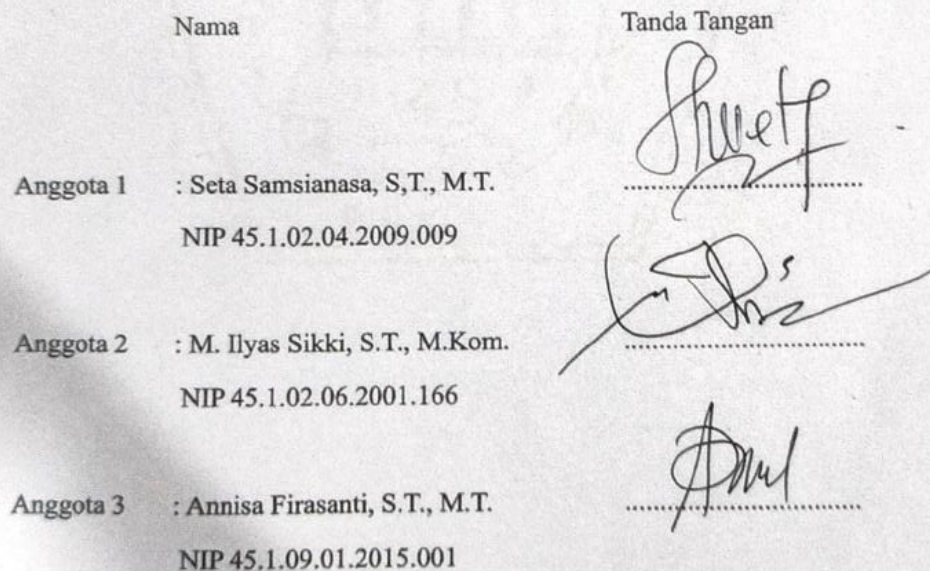 Nama Tanda Tangan
Anggota 1 : Seta Samsianasa, S,T., M.T.
NIP 45.1.02.04.2009.009
Anggota 2 : M. Ilyas Sikki, S.T., M.Kom.
NIP 45.1.02.06.2001.166
Anggota 3 : Annisa Firasanti, S.T., M.T.
NIP 45.1.09.01.2015.001